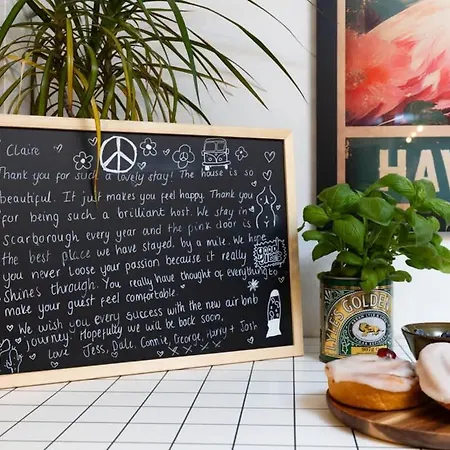 Claire
Thank you for such a lovely stay! The house is so
beautiful. It just makes you feel happy. Thank you
for being such a brilliant host. We stay in
Scarborough every year and the pink door is
the best place we have stayed, by a mile. We hope
you never loose your passion because it really
shine's through. You really have thought of everything to
make your guest feel comfortable.
We wish you every success with the new air bnb
journey. Hopefully we will be back soon,
love Jess, Dale, Connie, George, Harry + Josh
xxx
HAV
LYLE'S GOLDEN